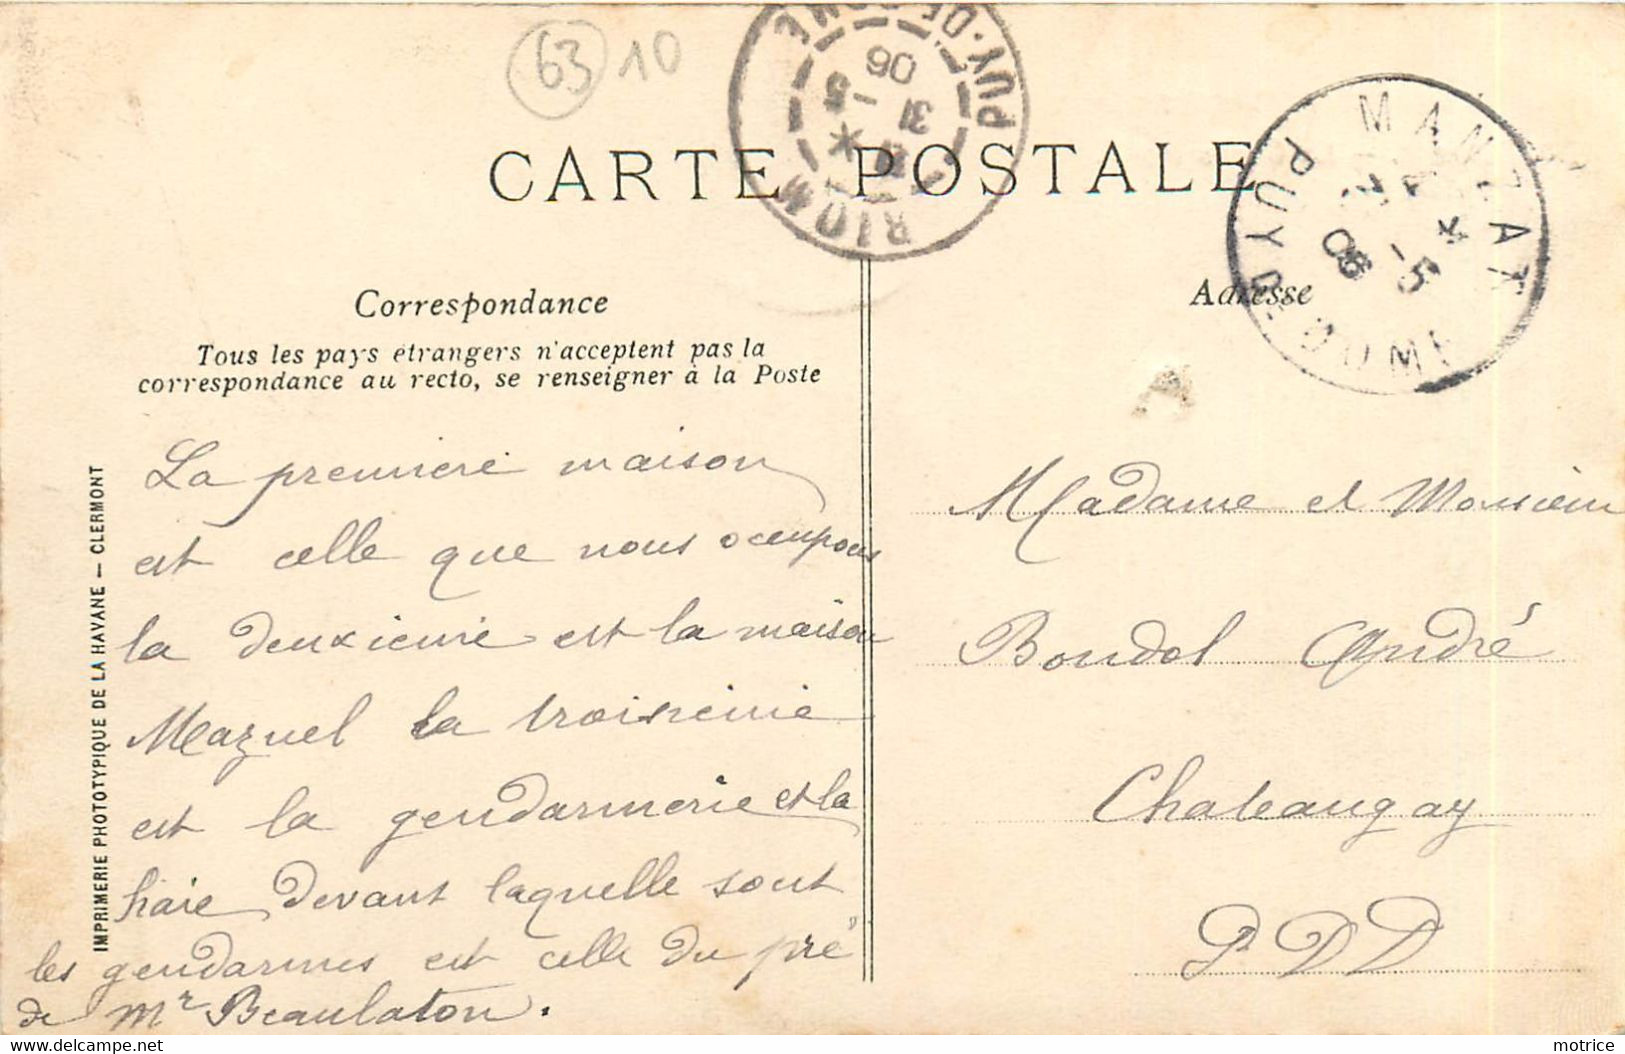 63 10
PUY-DE-DOME
RIOM
31 -5
06
MANZAT
PUY DE DOME
-5
06
CARTE POSTALE
Correspondance
Adresse
Tous les pays étrangers n'acceptent pas la
correspondance au recto, se renseigner à la Poste
IMPRIMERIE PHOTOTYPIQUE DE LA HAVANE — CLERMONT
La premiere maison
est celle que nous occupons
la deuxieme est la maison
Mazuel la troisieme
est la gendarmerie et la
haie devant laquelle sont
les gendarmes est celle du pré
de Mr Beaulaton.
Madame et Monsieur
Boudol André
Chateaugay
P. DD
delcampe.com
motrice